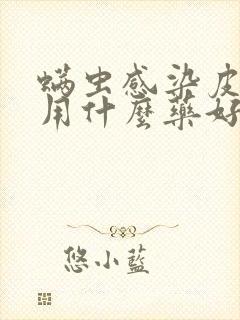 螨虫感染皮
用什麼藥好
悠小藍